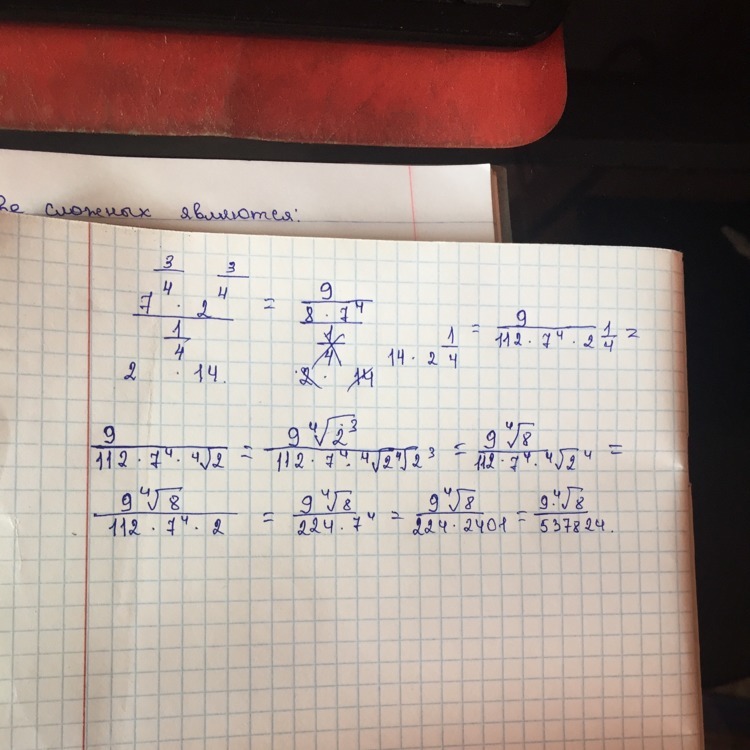 сложных являются:
3/4 3/4
7 · 2 = 9 / 8 · 7⁴ = 9 / 112 · 7⁴ · 2 1/4 =
1/4 1/4 14 · 2 1/4
2 · 14. 2 · 14
9 / 112 · 7⁴ · ⁴√2 = 9 ⁴√2³ / 112 · 7⁴ · ⁴√2 ⁴√2³ = 9 ⁴√8 / 112 · 7⁴ · ⁴√2⁴ =
9 ⁴√8 / 112 · 7⁴ · 2 = 9 ⁴√8 / 224 · 7⁴ = 9 ⁴√8 / 224 · 2401 = 9 · ⁴√8 / 537824.